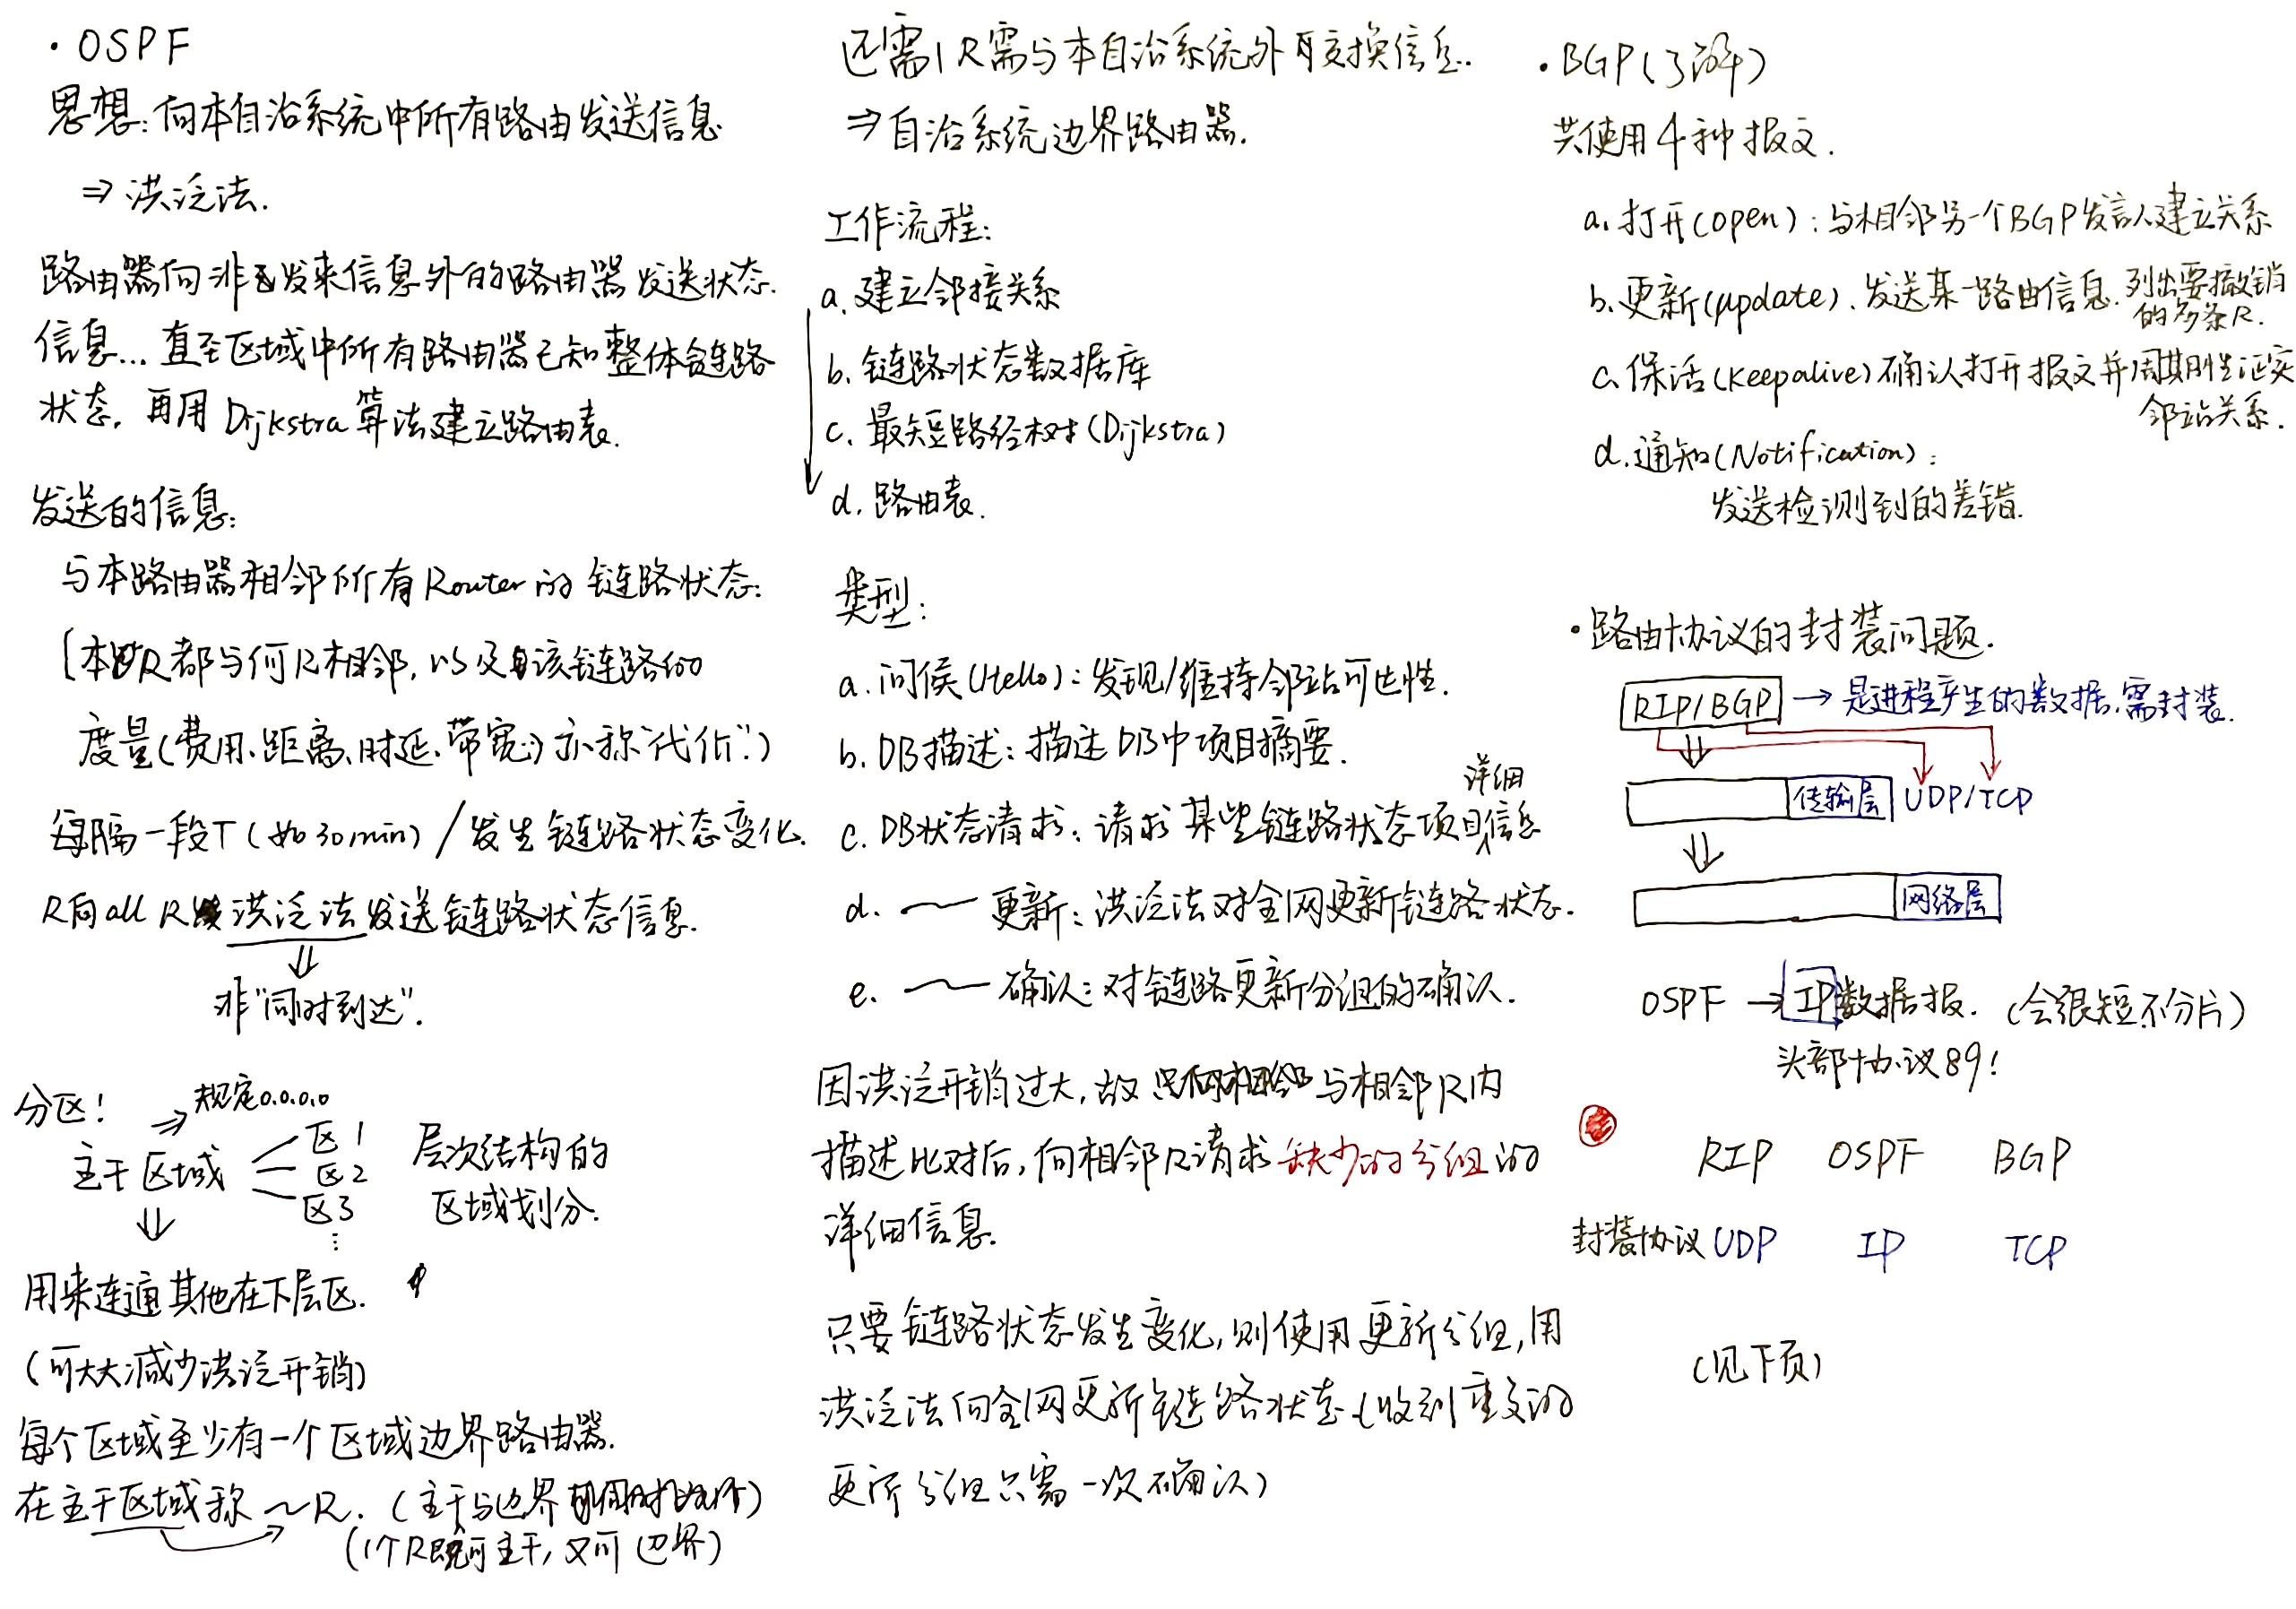 ·OSPF
思想:向本自治系统中所有路由发送信息
⇒ 洪泛法.
路由器向非发来信息外的路由器发送状态.
信息... 直至区域中所有路由器已知整体链路
状态. 再用 Dijkstra 算法建立路由表.
发送的信息:
与本路由器相邻所有Router的链路状态:
[本R都与何R相邻, 以及该链路的
度量(费用、距离、时延、带宽;) 亦称"代价".)
每隔一段T (如30min) / 发生链路状态变化.
R向all R 洪泛法发送链路状态信息.
⇓
非"同时到达".
分区! ⇒规定0.0.0.0
主干区域 区1 区2 区3 ⋮
层次结构的
区域划分.
⇓
用来连通其他在下层区.
(可大大减少洪泛开销)
每个区域至少有一个区域边界路由器.
在主干区域称 ~R. (主干与边界
(1个R既可主干, 又可边界)
还需1R需与本自治系统外再交换信息.
⇒自治系统边界路由器.
工作流程:
a. 建立邻接关系
b. 链路状态数据库
c. 最短路径树 (Dijkstra)
d. 路由表.
类型:
a. 问候(Hello): 发现/维持邻站可达性.
b. DB描述: 描述DB中项目摘要.
c. DB状态请求: 请求某些链路状态项目详细信息
d. — 更新: 洪泛法对全网更新链路状态.
e. — 确认: 对链路更新分组的确认.
因洪泛开销过大, 故 与相邻R内
描述比对后, 向相邻R请求缺少的分组的
详细信息.
只要链路状态发生变化, 则使用更新分组, 用
洪泛法向全网更新链路状态 (收到重复的
更新分组只需一次确认)
·BGP(了解)
共使用4种报文.
a. 打开(open): 与相邻另一个BGP发言人建立关系
b. 更新(update). 发送某一路由信息. 列出要撤销
的多条R.
c. 保活(Keepalive) 确认打开报文并周期性证实
邻站关系.
d. 通知(Notification):
发送检测到的差错.
·路由协议的封装问题.
RIP/BGP → 是进程产生的数据, 需封装.
⇓
传输层 UDP/TCP
⇓
网络层
OSPF → IP数据报. (会很短不分片)
头部协议89!
RIP OSPF BGP
封装协议 UDP IP TCP
(见下页)